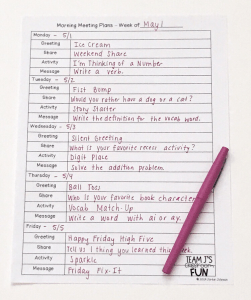 Morning Meeting Plans - Week of May 1
Monday - 5/1
Greeting Ice Cream
Share Weekend Share
Activity I'm Thinking of a Number
Message Write a verb.
Tuesday - 5/2
Greeting Fist Bump
Share Would you rather have a dog or a cat?
Activity Story Starter
Message Write the definition for the vocab word.
Wednesday - 5/3
Greeting Silent Greeting
Share What is your favorite recess activity?
Activity Digit Place
Message Solve the addition problem.
Thursday - 5/4
Greeting Ball Toss
Share Who is your favorite book character
Activity Vocab Match-Up
Message Write a word with ai or ay.
Friday - 5/5
Greeting Happy Friday High Five
Share Tell us 1 thing you learned this week.
Activity Sparkle
Message Friday Fix-It
TEAM J'S
FUN